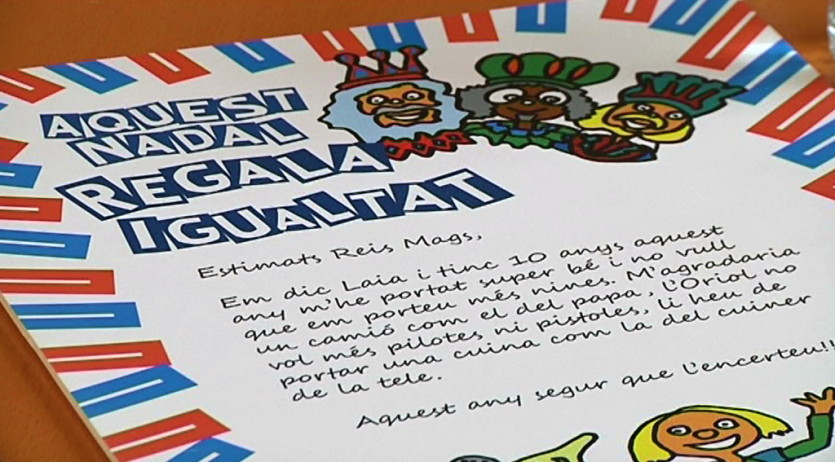 AQUEST
NADAL
REGALA
IGUALTAT
Estimats Reis Mags,
Em dic Laia i tinc 10 anys aquest
any m'he portat super bé i no vull
que em porteu més nines. M'agradaria
un camió com el del papa, l'Oriol no
vol més pilotes ni pistoles, li heu de
portar una cuina com la del cuiner
de la tele.
Aquest any segur que l'encerteu!!